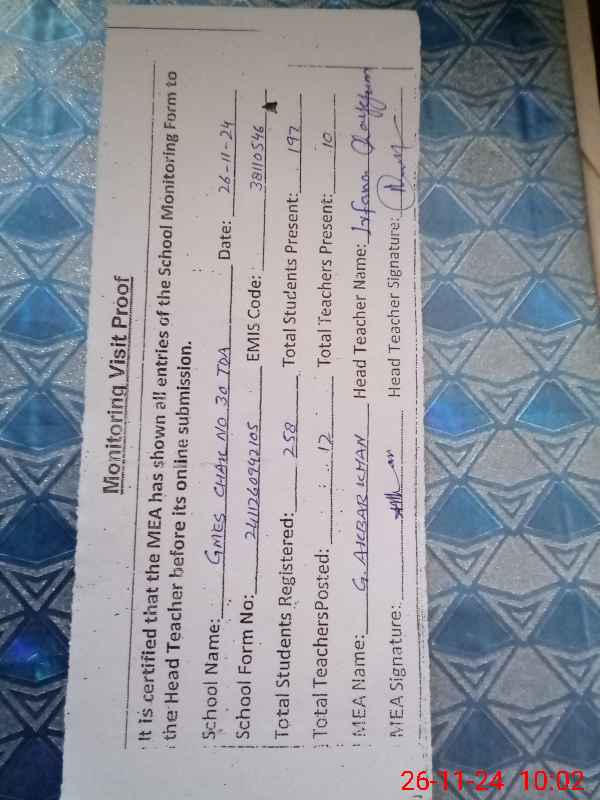 Monitoring Visit Proof
It is certified that the MEA has shown all entries of the School Monitoring Form to
the Head Teacher before its online submission.
School Name: GMES CHAK NO 30 TDA Date: 26-11-24
School Form No: EMIS Code: 38110546
Total Students Registered: 258 Total Students Present: 197
Total TeachersPosted: 12 Total Teachers Present: 10
MEA Name: G. AKBAR KHAN Head Teacher Name: Irfana
MEA Signature: Head Teacher Signature:
26-11-24 10:02